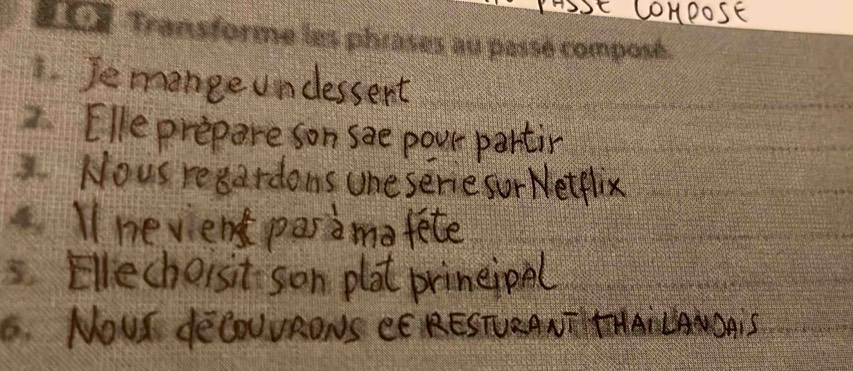 PASSE COMPOSE
10 Transforme les phrases au passé composé.
1. Je mange un dessert
2. Elle prépare son sac pour partir
3. Nous regardons une série sur Netflix
4. Il ne vient pas à ma fête
5. Elle choisit son plat principal
6. Nous décOUVRONS CE RESTURANT tHAiLANDAiS